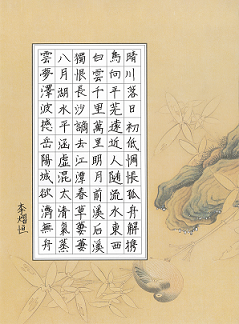 晴川落日初低惆悵孤舟解攜
鳥向平蕪遠近人隨流水東西
白雲千里萬里明月前溪后溪
獨恨長沙謫去江潭春草萋萋
八月湖水平涵虛混太清氣蒸
雲夢澤波撼岳陽城欲濟無舟
李熠恒